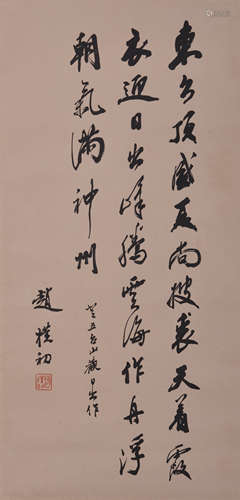 東台頂盛夏尚披裘天著霞
衣迎日出峰騰雲海作舟浮
朝氣滿神州
癸丑台山觀日出作
趙樸初